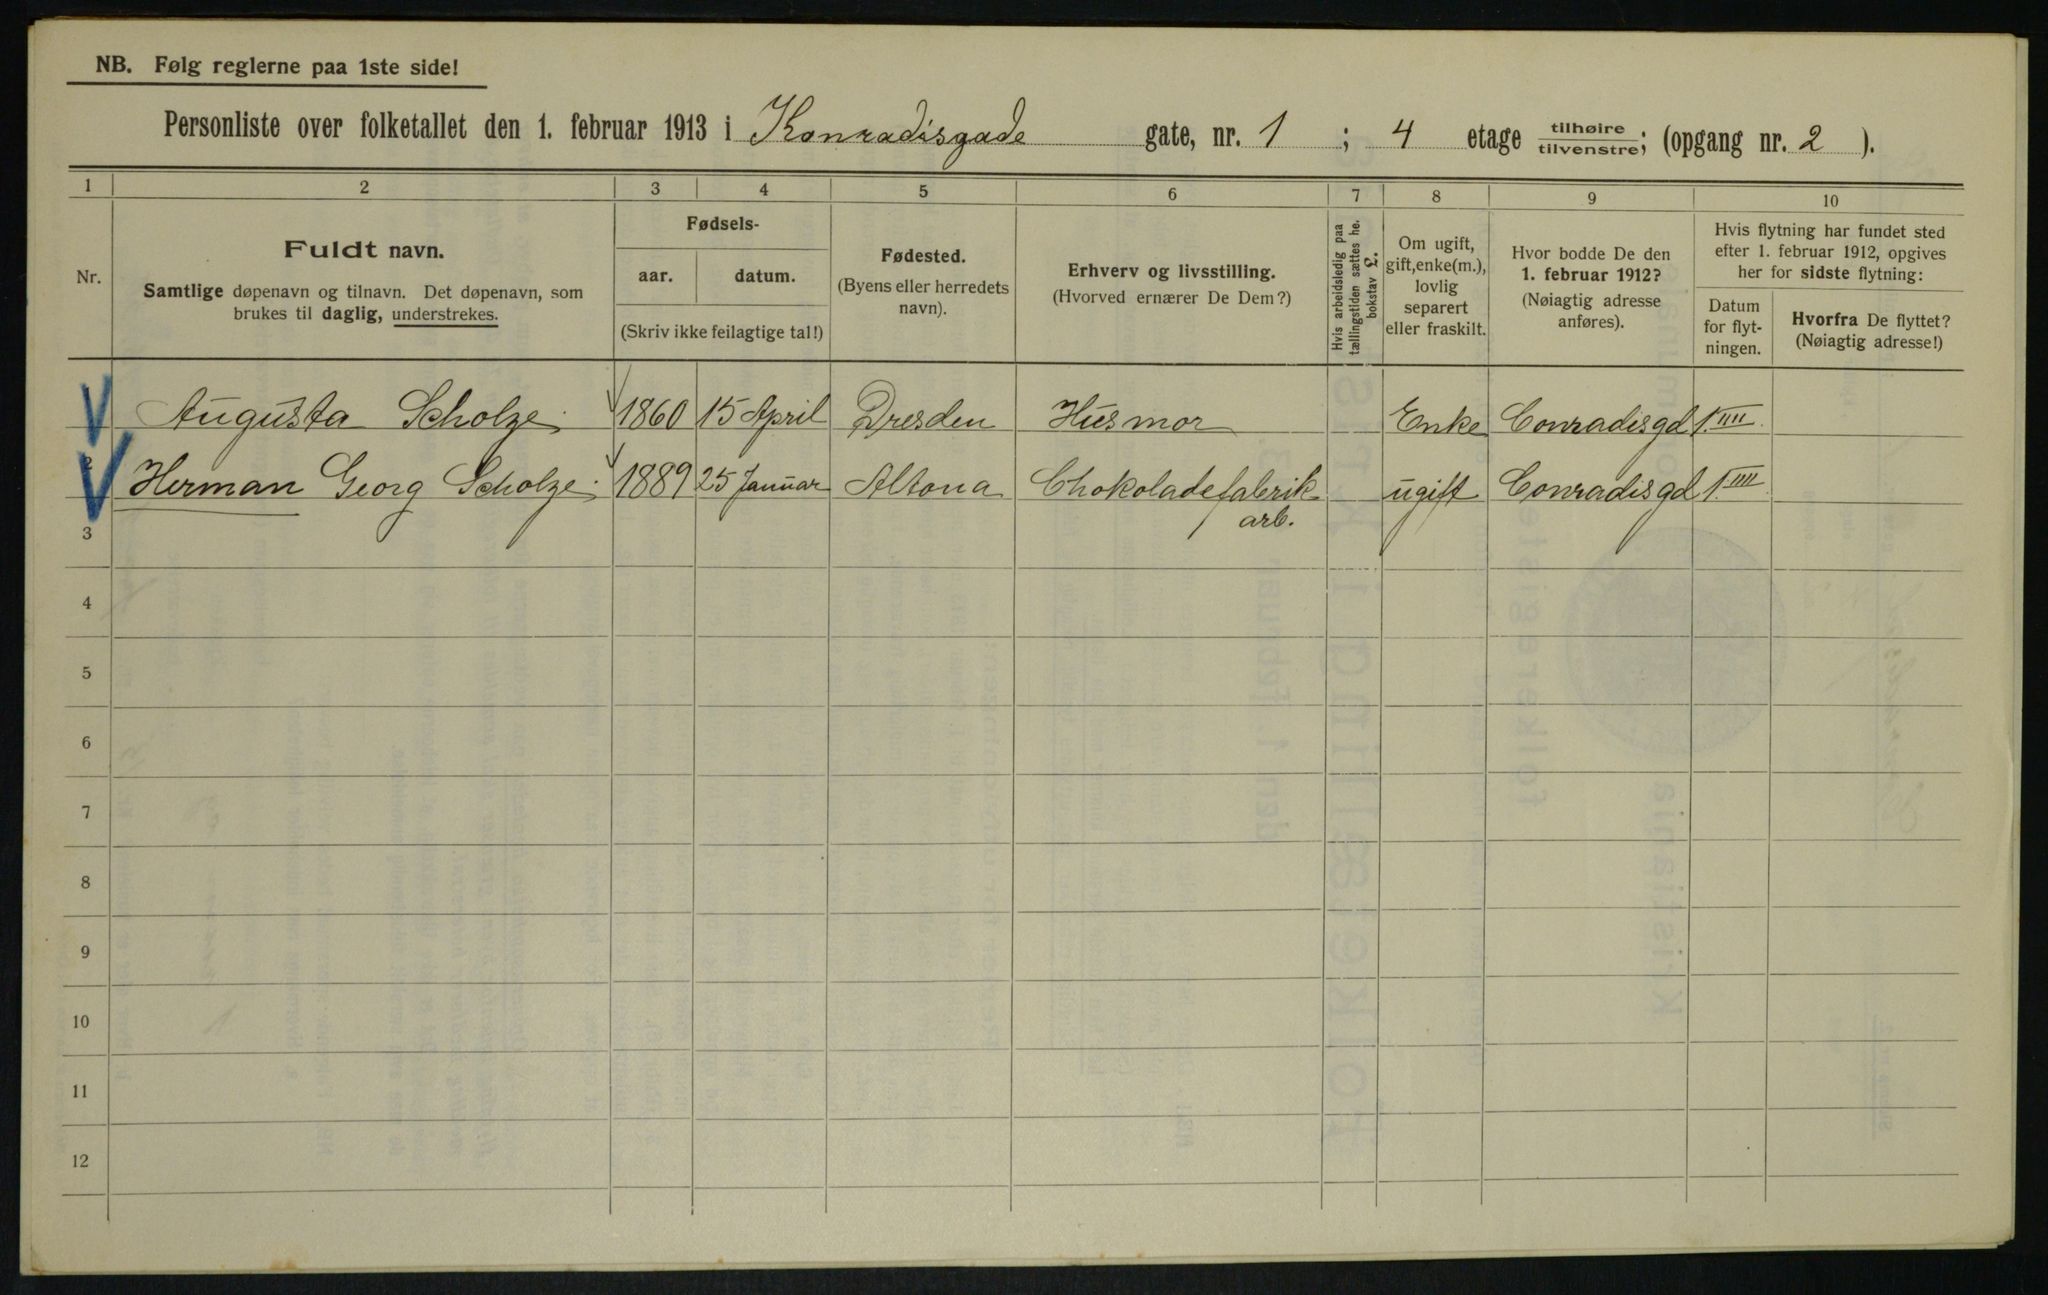 NB. Følg reglerne paa 1ste side!
Personliste over folketallet den 1. februar 1913 i Konradisgade gate, nr. 1 ; 4 etage tilhøire tilvenstre; (opgang nr. 2 ).
1 2 3 4 5 6 7 8 9 10
Nr.
Fuldt navn.
Samtlige døpenavn og tilnavn. Det døpenavn, som
brukes til daglig, understrekes.
Fødsels-
aar. datum.
(Skriv ikke feilagtige tal!)
Fødested.
(Byens eller herredets
navn).
Erhverv og livsstilling.
(Hvorved ernærer De Dem?)
Hvis arbeidsledig paa
tællingstiden sættes he.
bokstav L.
Om ugift,
gift, enke(m.),
lovlig
separert
eller fraskilt.
Hvor bodde De den
1. februar 1912?
(Nøiagtig adresse
anføres).
Hvis flytning har fundet sted
efter 1. februar 1912, opgives
her for sidste flytning:
Datum
for flyt-
ningen.
Hvorfra De flyttet?
(Nøiagtig adresse!)
1 Augusta Scholze 1860 15 April Dresden Husmor Enke Conradisgd 1 IIII
2 Herman Georg Scholze 1889 25 Januar Altona Chokoladefabrik ugift Conradisgd 1 IIII
arb.
3
4
5
6
7
8
9
10
11
12